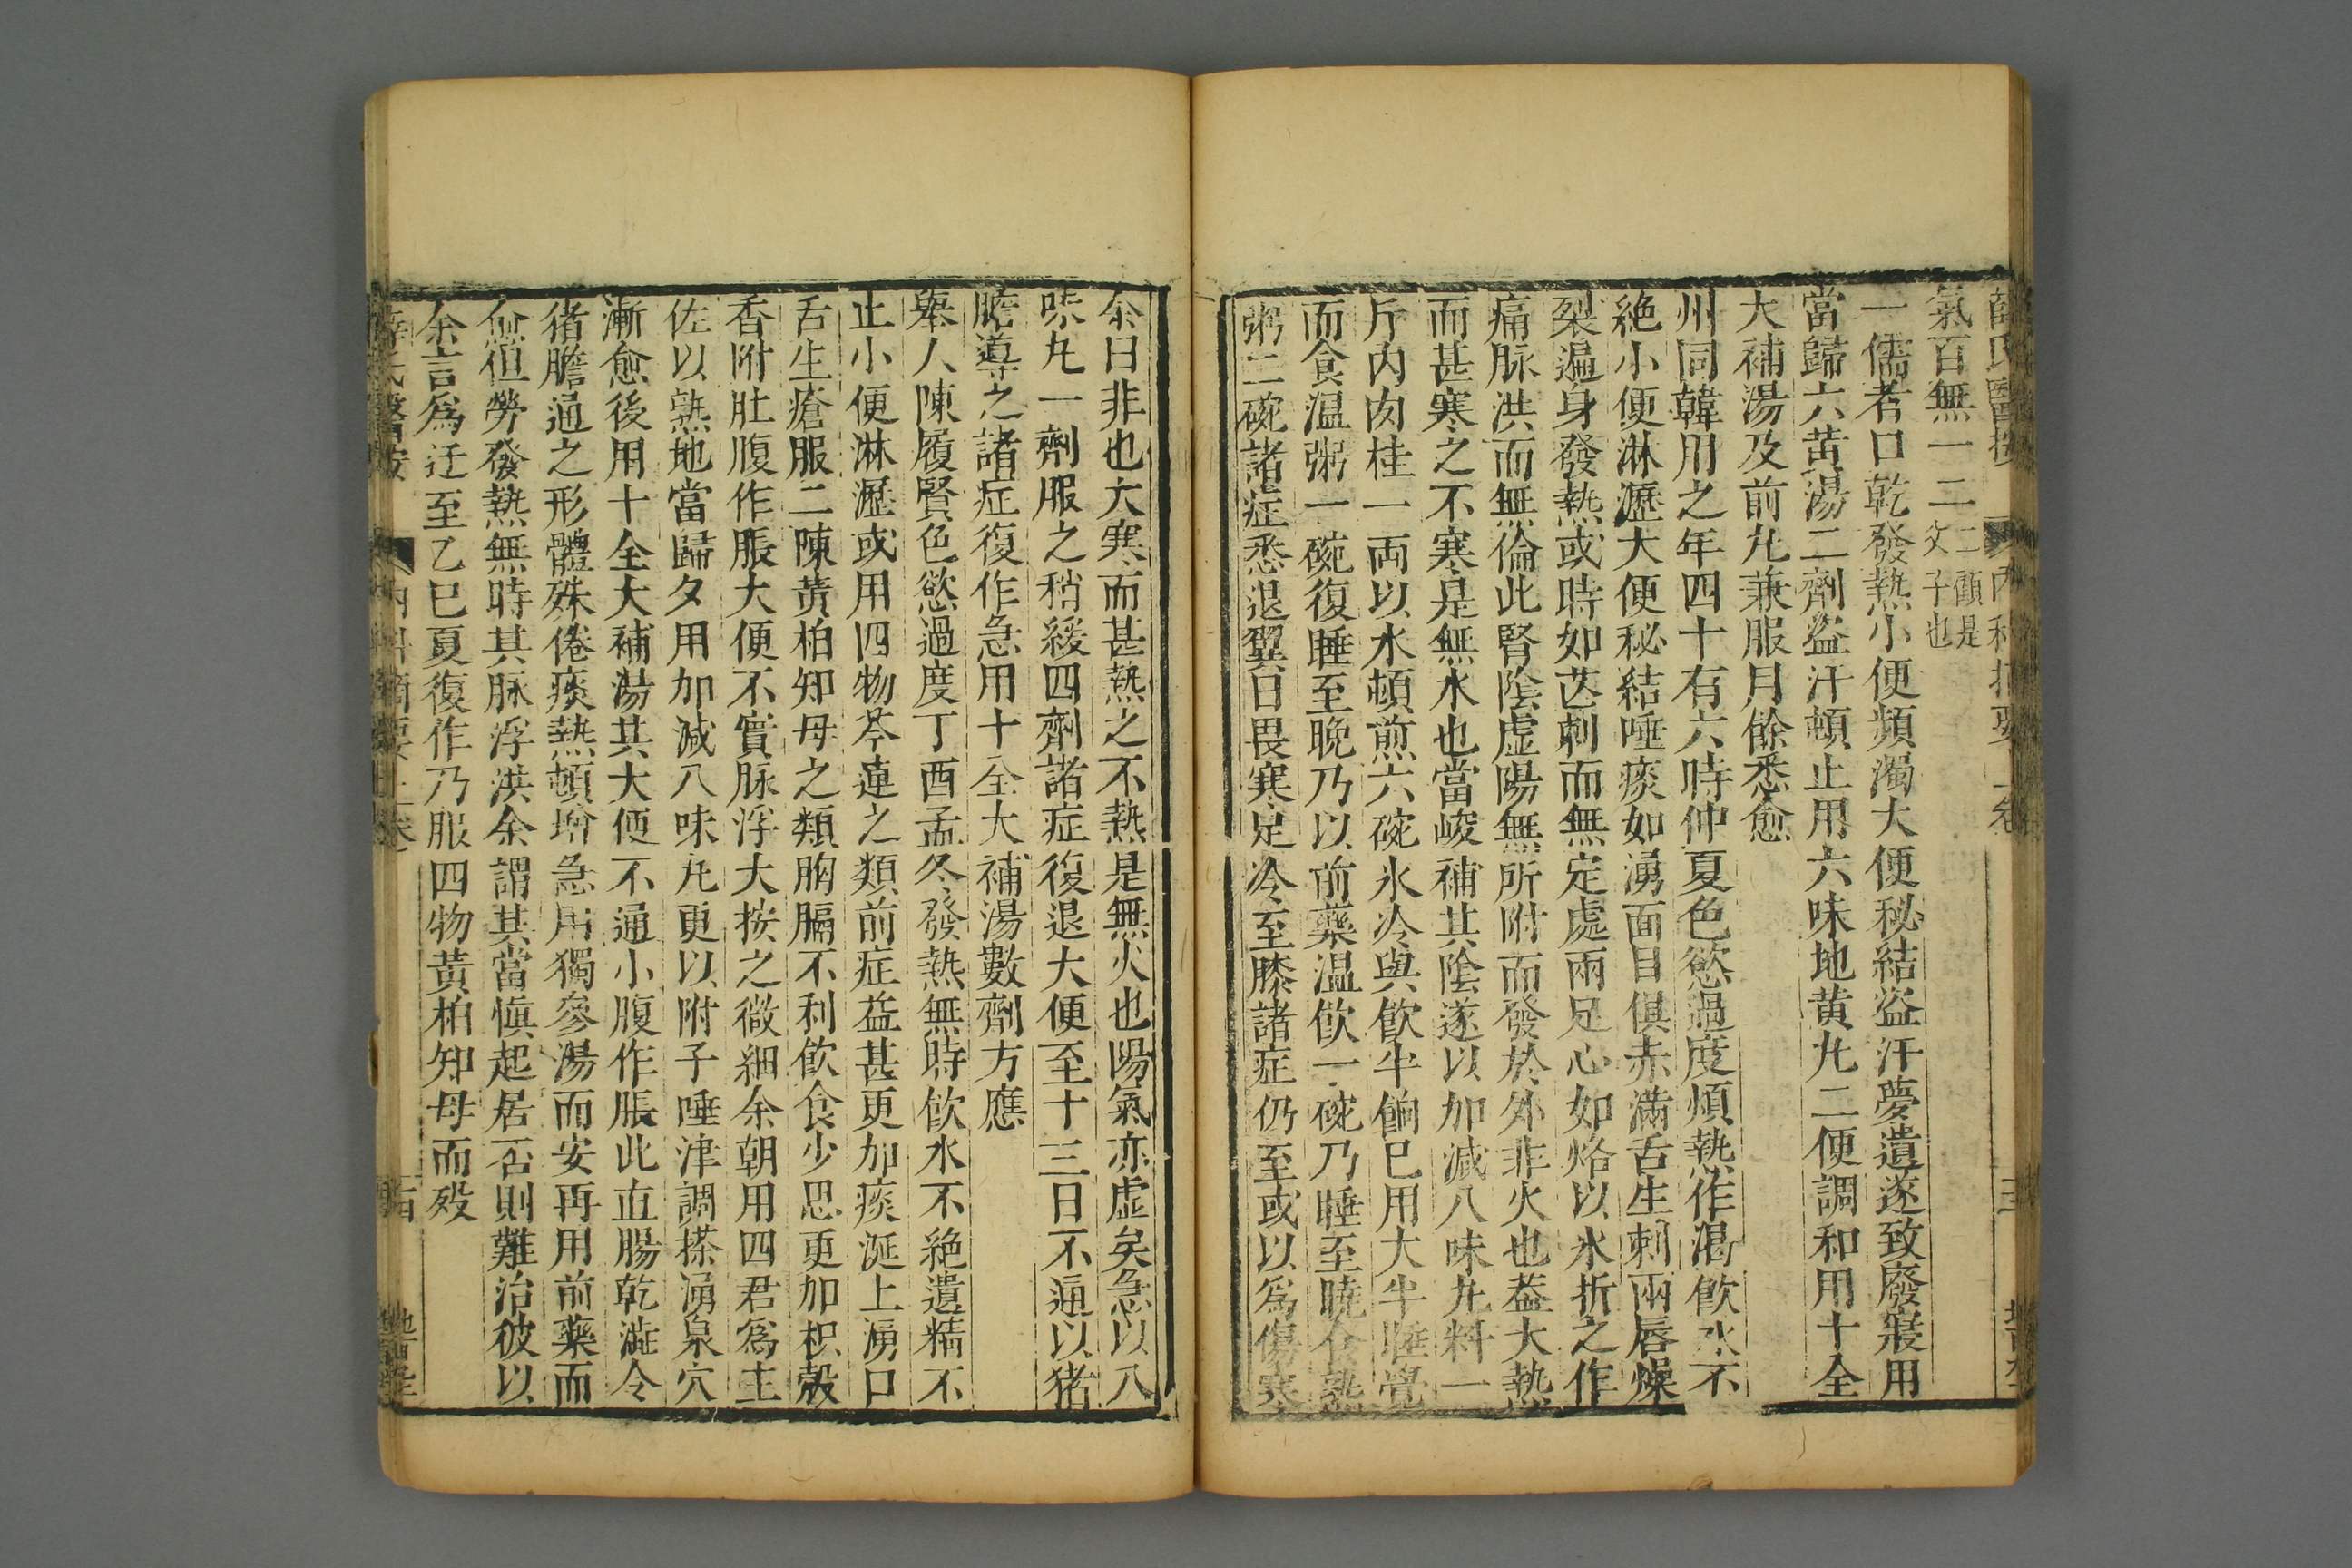 氣百無一二二顧是文子也
一儒者口乾發熱小便頻濁大便秘結盜汗夢遺遂致廢寢用
當歸六黃湯二劑盜汗頓止用六味地黃九二便調和用十全
大補湯及前九兼服月餘悉愈
州同韓用之年四十有六時仲夏色慾過度煩熱作渴飲水不
絶小便淋瀝大便秘結唾痰如湧面目俱赤滿舌生刺兩唇燥
裂遍身發熱或時如芒刺而無定處兩足心如烙以氷折之作
痛脉洪而無倫此腎陰虛陽無所附而發於外非火也葢大熱
而甚寒之不寒是無水也當峻補其陰遂以加減八味九料一
斤内肉桂一兩以水頓煎六碗氷冷與飲半餉巳用大半睡覺
而食温粥一碗復睡至晚乃以前藥温飲一碗乃睡至曉食熱
粥二碗諸症悉退翼日畏寒足冷至膝諸症仍至或以爲傷寒
余曰非也大寒而甚熱之不熱是無火也陽氣亦虛矣急以八
味九一劑服之稍緩四劑諸症復退大便至十三日不通以猪
膽導之諸症復作急用十全大補湯數劑方應
舉人陳履賢色慾過度丁酉孟冬發熱無時飲水不絶遺精不
止小便淋瀝或用四物芩連之類前症益甚更加痰涎上湧口
舌生瘡服二陳黃柏知母之類胸膈不利飲食少思更加枳殼
香附肚腹作脹大便不實脉浮大按之微細余朝用四君爲主
佐以熟地當歸夕用加減八味九更以附子唾津調搽湧泉穴
漸愈後用十全大補湯其大便不通小腹作脹此直腸乾澁令
猪膽通之形體殊倦痰熱頓增急用獨參湯而安再用前藥而
愈但勞發熱無時其脉浮洪余謂其當愼起居否則難治彼以
余言爲迂至乙巳夏復作乃服四物黃柏知母而殁